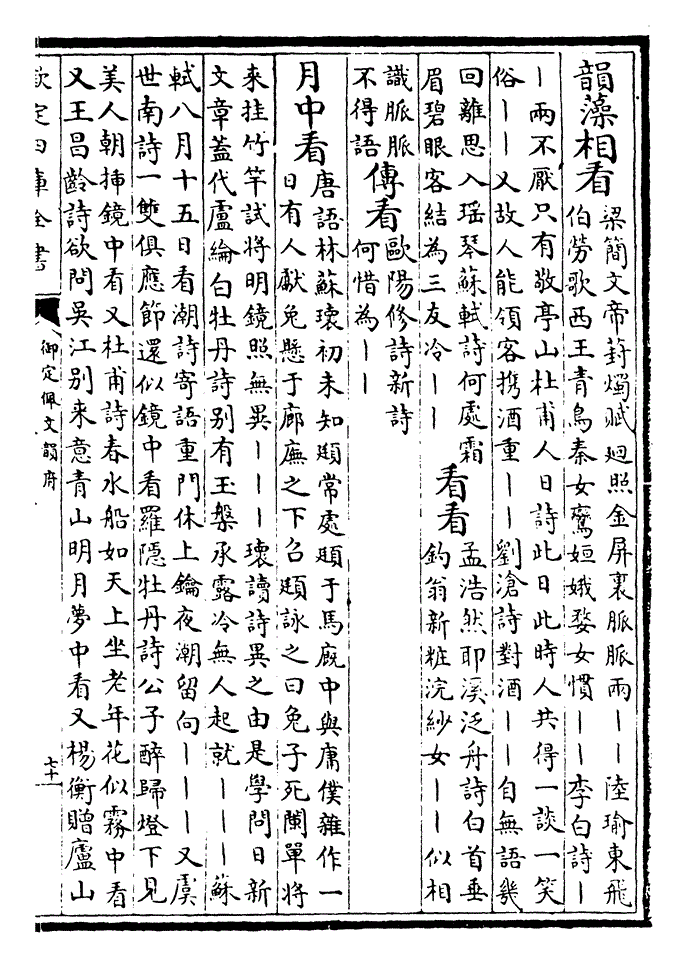 韻藻相看
梁簡文帝對燭賦廻照金屏裏脈脈兩丨丨陸瑜東飛
伯勞歌西王青鳥秦女鸞姮娥婺女慣丨丨李白詩丨
丨兩不厭只有敬亭山杜甫人日詩此日此時人共得一談一笑
俗丨丨又故人能領客携酒重丨丨劉滄詩對酒丨丨自無語幾
回離思入瑶琴蘇軾詩何處霜
眉碧眼客結為三友冷丨丨
看看
孟浩然耶溪泛舟詩白首垂
釣翁新粧浣紗女丨丨似相
識脈脈
不得語
傳看
歐陽修詩新詩
何惜為丨丨
月中看
唐語林蘇瓌初未知頲常處頲于馬廐中與庸僕雜作一
日有人獻兔懸于廊廡之下召頲詠之曰兔子死闌單將
來挂竹竿試將明鏡照無異丨丨丨瓌讀詩異之由是學問日新
文章蓋代盧綸白牡丹詩别有玉槃承露冷無人起就丨丨丨蘇
軾八月十五日看潮詩寄語重門休上鑰夜潮留向丨丨丨又虞
世南詩一雙俱應節還似鏡中看羅隱牡丹詩公子醉歸燈下見
美人朝揷鏡中看又杜甫詩春水船如天上坐老年花似霧中看
又王昌齡詩欲問吳江别來意青山明月夢中看又楊衡贈廬山
欽定四庫全書
御定佩文韻府
七十一